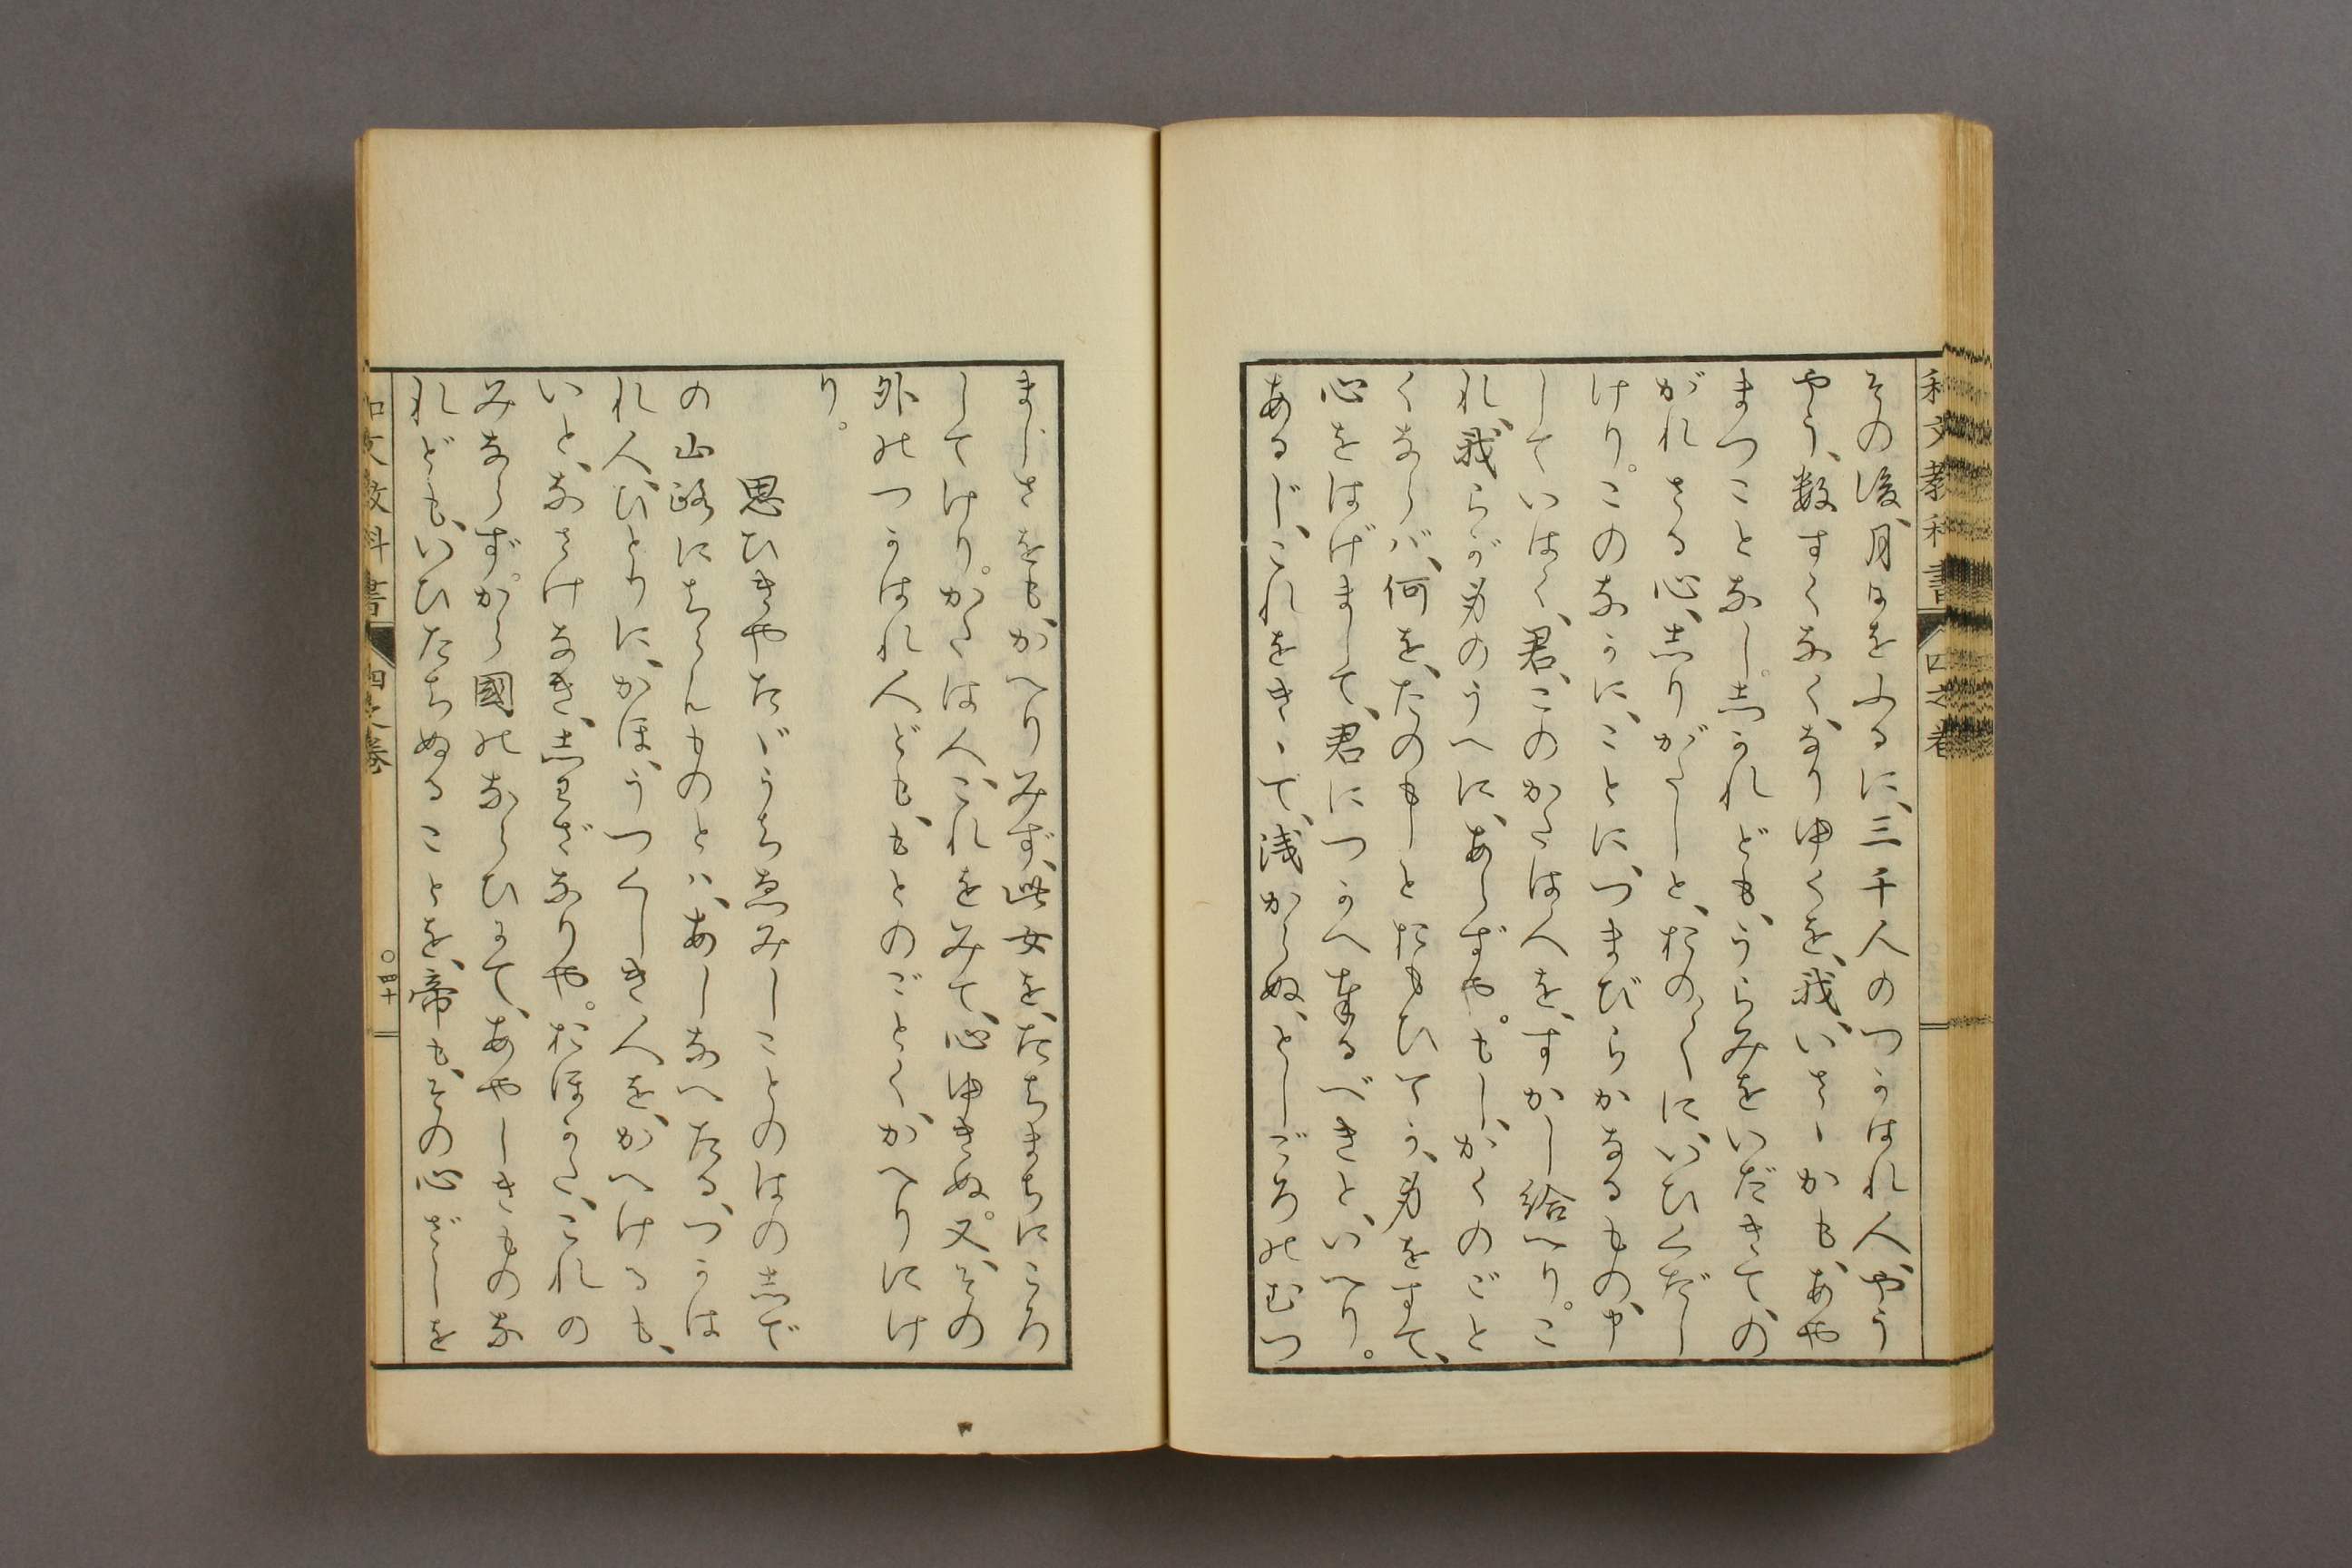 その後、月日をふるに、三千人のつかはれ人、やう
やう、数すくなく、なりゆくを、我、いさゝかも、あや
まつことなし。志かれども、うらみをいだきて、の
がれさる心、志りがたしと、おの〱に、いひくだし
けり。このなかに、ことに、つまびらかなるもの、申
していはく、君、このかたは人を、すかし給へり。こ
れ、我らが身のうへに、あらずや。もし、かくのごと
くならバ、何を、たのもしとおもひてか、身をすて、
心をはげまして、君につかへ奉るべきと、いへり。
あるじ、これをきゝて、浅からぬ、としごろのむつ
ましさをも、かへりみず、此女を、たちまちにころ
してけり。かたは人、これをみて、心ゆきぬ。又、その
外のつかはれ人ども、もとのごとく、かへりにけ
り。
思ひきやたゞうちゑみしことのはの志で
の山路にならんものとハ、あしなへたる、つかは
れ人、ひとりに、かほ、うつくしき人を、かへけるも、
いと、なさけなき、志わざなりや。おほかた、これの
みならず、から國のならひにて、あやしきものな
れども、いひたちぬることを、帝も、その心ざしを
和文教科書 四之巻
和文教科書 四之巻 〇四十